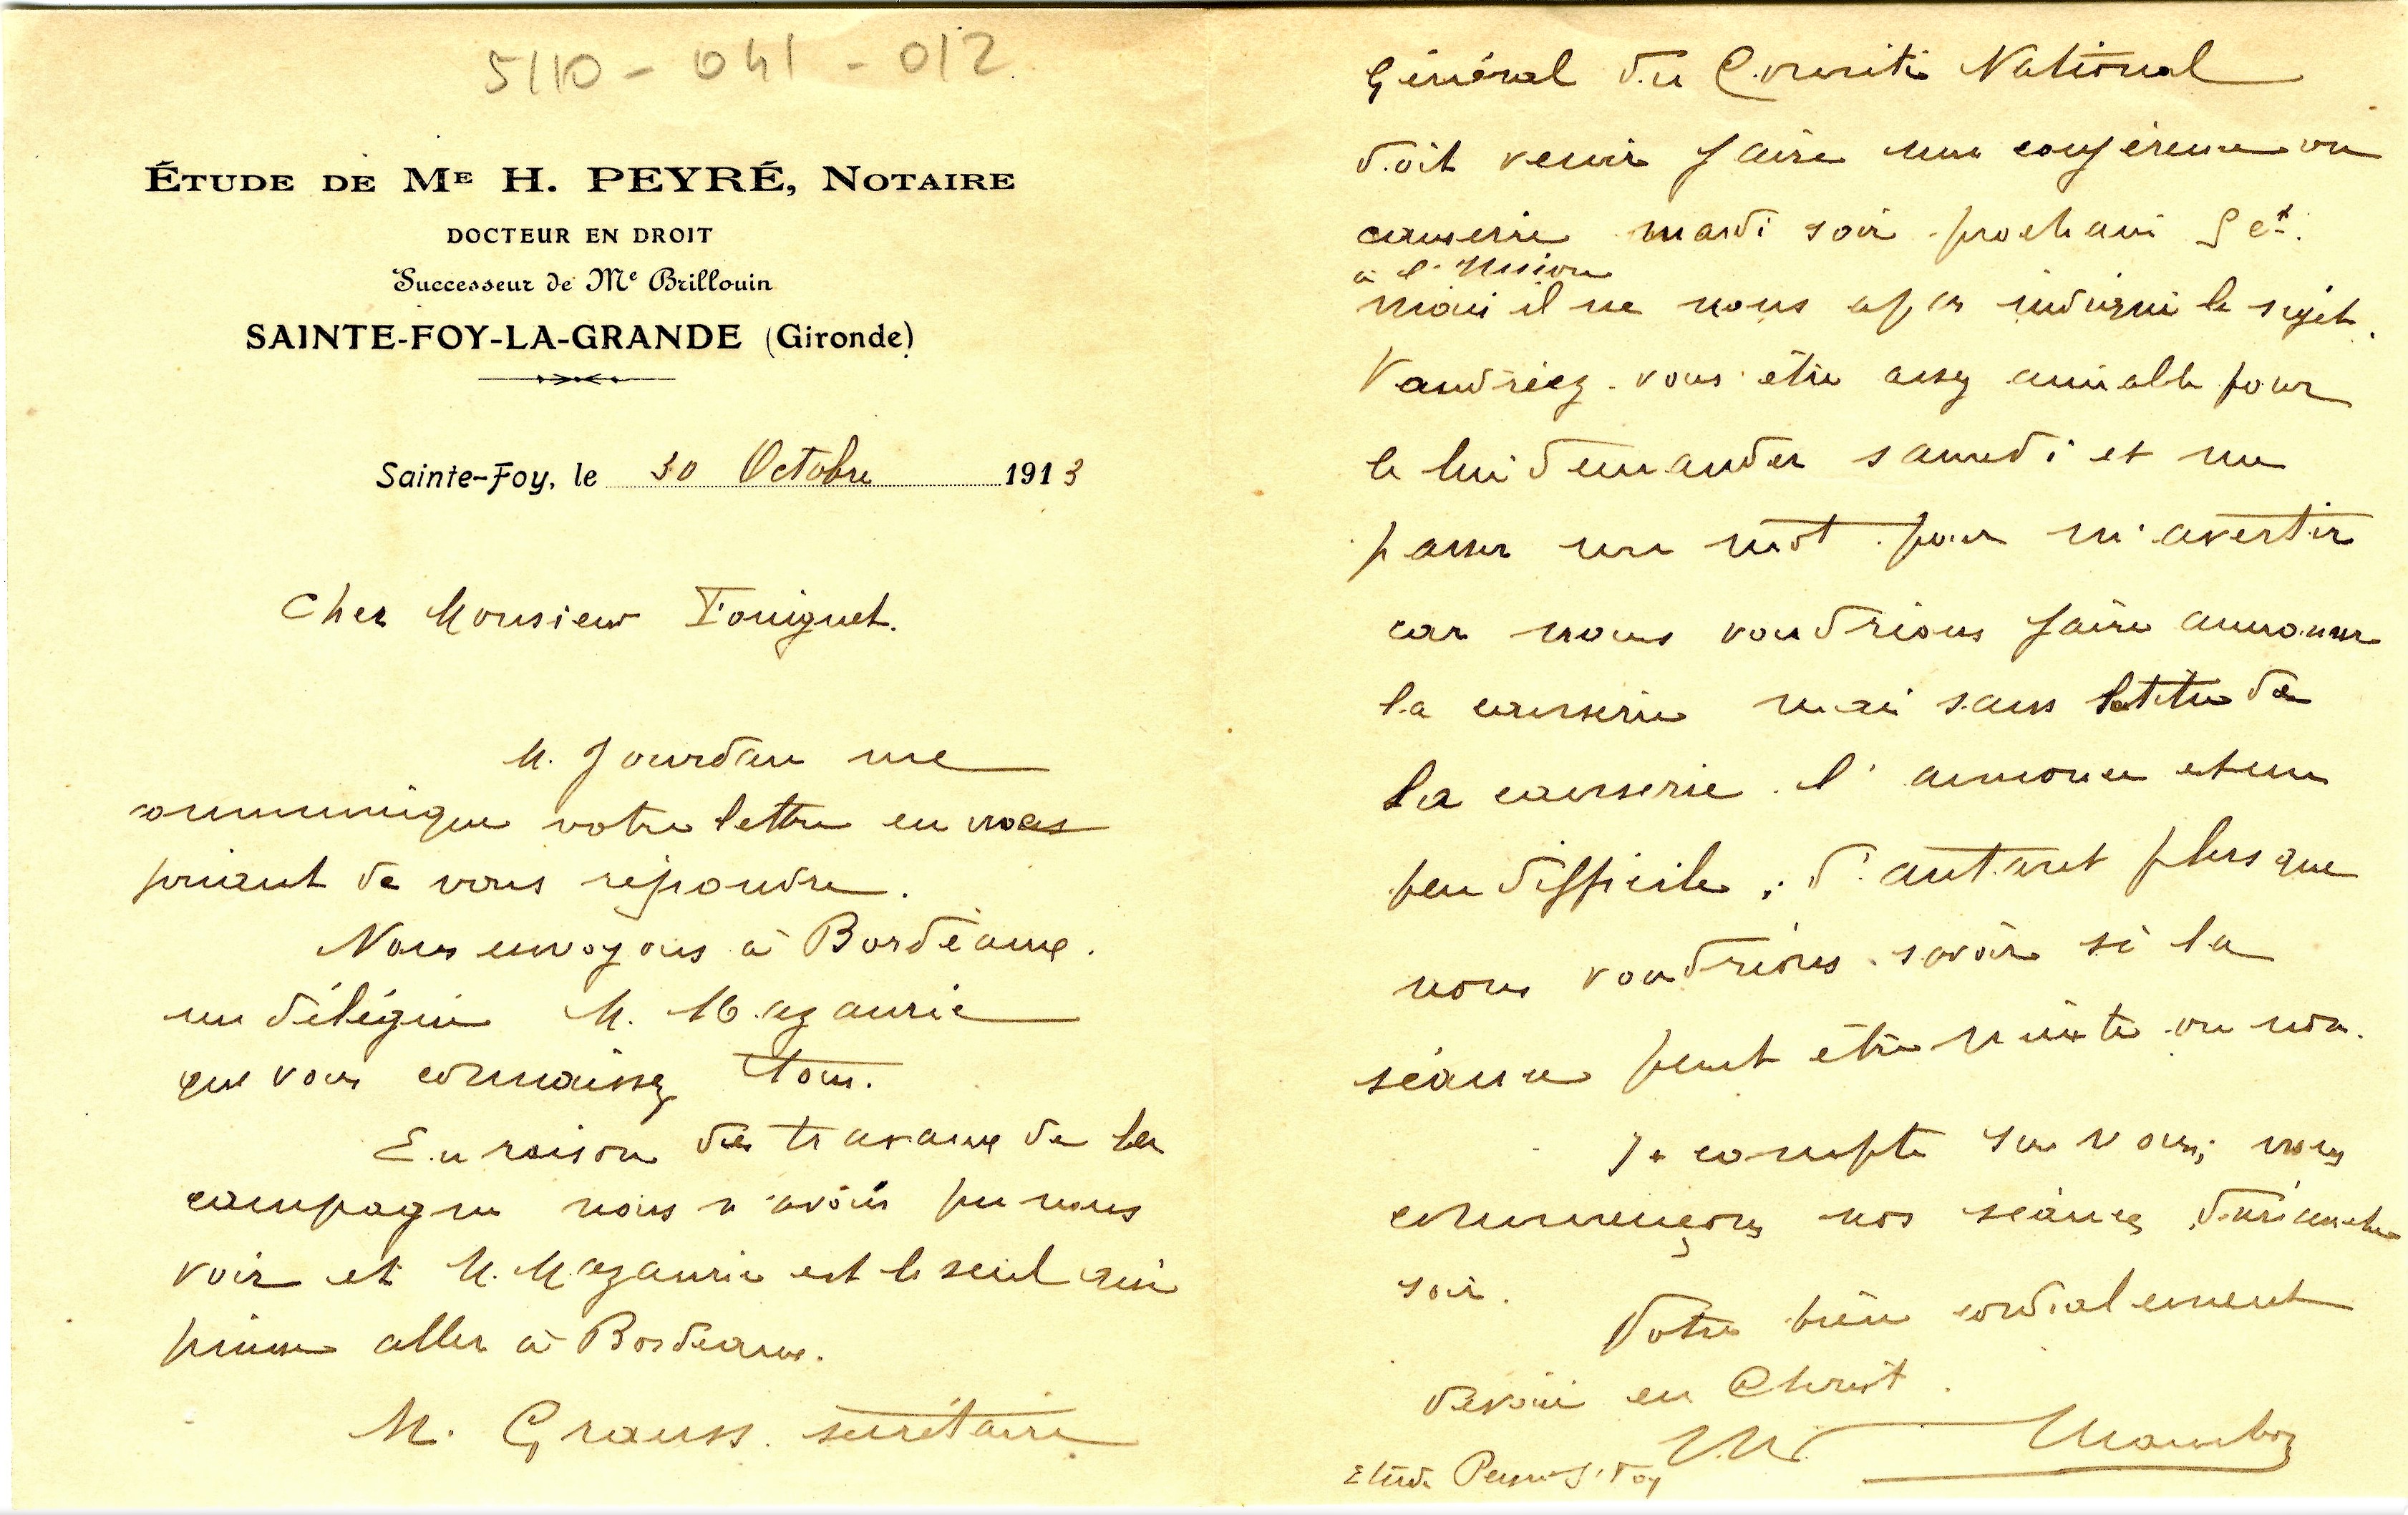 5110 - 041 - 012
ÉTUDE DE Me H. PEYRÉ, NOTAIRE
DOCTEUR EN DROIT
Successeur de Me Brillouin
SAINTE-FOY-LA-GRANDE (Gironde)
Sainte-Foy, le 30 Octobre 1913
Cher Monsieur Touignet.
M. Jourdan me
communique votre lettre en me
priant de vous répondre.
Nous envoyons à Bordeaux.
un délégué M. Mazauric
que vous connaissez tous.
En raison des travaux de la
campagne nous n'avons pu nous
voir et M. Mazauric est le seul qui
puisse aller à Bordeaux.
M. Grauss. secrétaire
Général du Comité National
doit venir faire une conférence ou
causerie mardi soir prochain
à l'Union
mais il ne nous a pas indiqué le sujet.
Voudriez-vous être assez aimable pour
le lui demander samedi et me
passer un mot pour m'avertir
car nous voudrions faire annoncer
la causerie mais sans le titre de
la causerie l'annonce est un
peu difficile ; d'autant plus que
nous voudrions savoir si la
séance peut être mixte ou non.
Je compte sur vous; nous
commençons nos séances dimanche
soir.
Votre bien cordialement
dévoué en Christ.
Etude Peyré Ste Foy